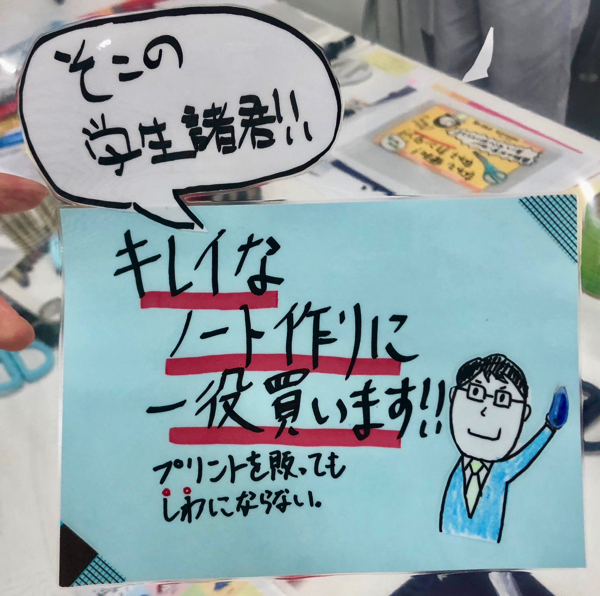 そこの
学生諸君!!
キレイな
ノート作りに
一役買います!!
プリントを貼っても
しわにならない。